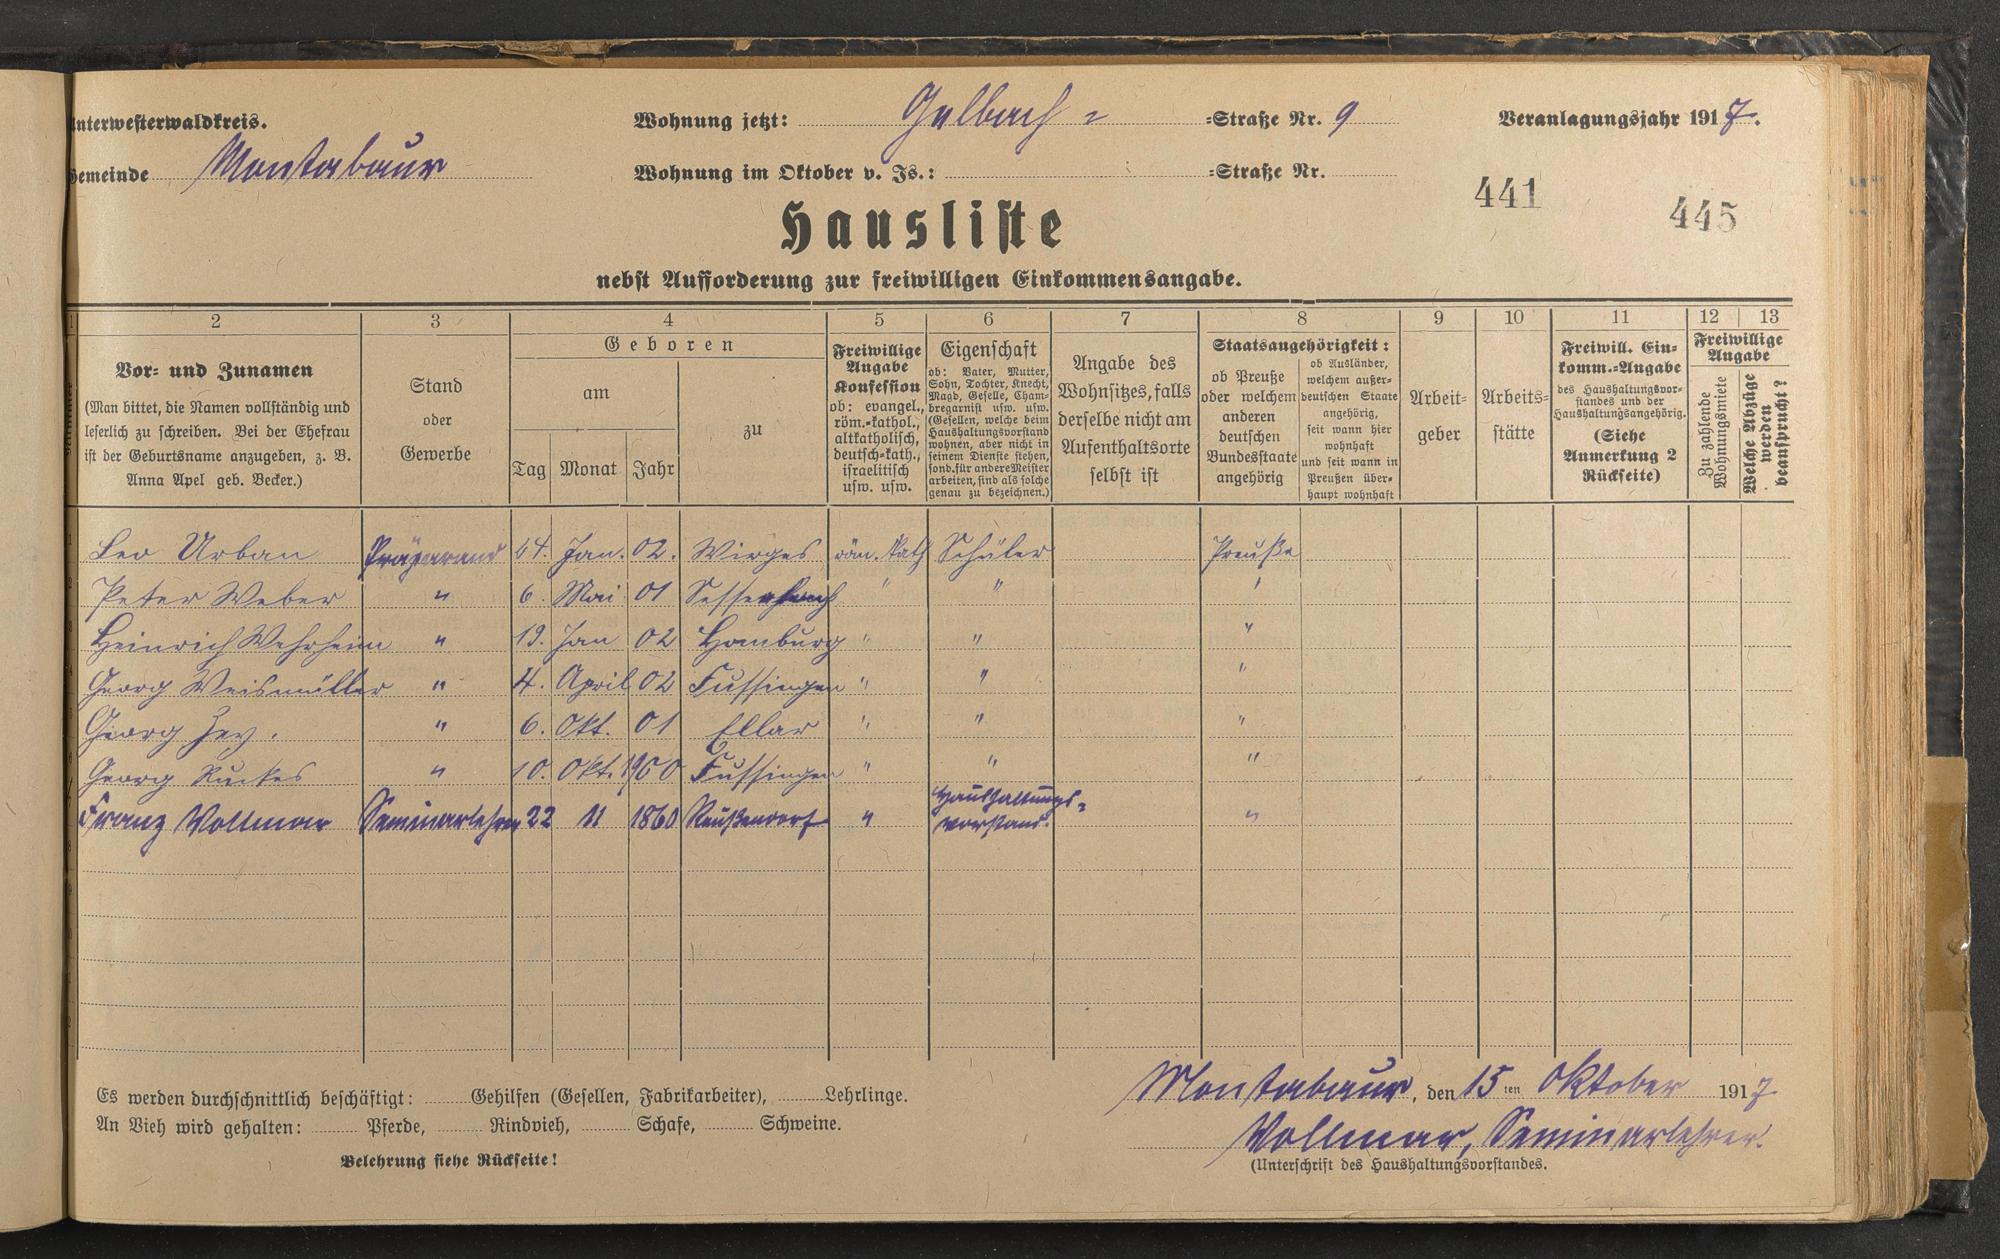 Unterwesterwaldkreis.
Gemeinde Montabaur
Wohnung jetzt: Gelbach- -Straße Nr. 9
Wohnung im Oktober v. Js.: -Straße Nr.
Veranlagungsjahr 1917.
441
445
Hausliste
nebst Aufforderung zur freiwilligen Einkommensangabe.
1 2 3 4 5 6 7 8 9 10 11 12 13
Vor- und Zunamen
(Man bittet, die Namen vollständig und
leserlich zu schreiben. Bei der Ehefrau
ist der Geburtsname anzugeben, z. B.
Anna Apel geb. Becker.)
Stand
oder
Gewerbe
Geboren
am
Tag Monat Jahr
zu
Freiwillige
Angabe
Konfession
ob: evangel.,
röm.-kathol.,
altkatholisch,
deutsch-kath.,
israelitisch
usw. usw.
Eigenschaft
ob: Vater, Mutter,
Sohn, Tochter, Knecht,
Magd, Geselle, Cham-
bregarnist usw. usw.
(Gesellen, welche beim
Haushaltungsvorstand
wohnen, aber nicht in
seinem Dienste stehen,
sond. für andere Meister
arbeiten, sind als solche
genau zu bezeichnen.)
Angabe des
Wohnsitzes, falls
derselbe nicht am
Aufenthaltsorte
selbst ist
Staatsangehörigkeit:
ob Preuße
oder welchem
anderen
deutschen
Bundesstaate
angehörig
ob Ausländer,
welchem außer-
deutschen Staate
angehörig,
seit wann hier
wohnhaft
und seit wann in
Preußen über-
haupt wohnhaft
Arbeit-
geber
Arbeits-
stätte
Freiwill. Ein-
komm.-Angabe
des Haushaltungsvor-
standes und der
Haushaltungsangehörig.
(Siehe
Anmerkung 2
Rückseite)
Freiwillige
Angabe
Zu zahlende
Wohnungsmiete
Welche Abzüge
werden
beansprucht?
Leo Urban Präparand 14. Jan. 02. Wirges röm. kath Schüler Preuße
Peter Weber " 6. Mai 01 " " "
Heinrich Wehrheim " 19. Jan 02 Homburg " " "
Georg Weismüller " 4. April 02 Fussingen " " "
Georg Hey. " 6. Okt. 01 Ellar " " "
Georg " 10. Okt. 1900 Fussingen " " "
Franz Vollmar Seminarlehrer 22 11 1860 " Haushaltungs-
vorstand. "
Es werden durchschnittlich beschäftigt: Gehilfen (Gesellen, Fabrikarbeiter), Lehrlinge.
An Vieh wird gehalten: Pferde, Rindvieh, Schafe, Schweine.
Belehrung siehe Rückseite!
Montabaur, den 15ten Oktober 1917
Vollmar, Seminarlehrer.
(Unterschrift des Haushaltungsvorstandes.